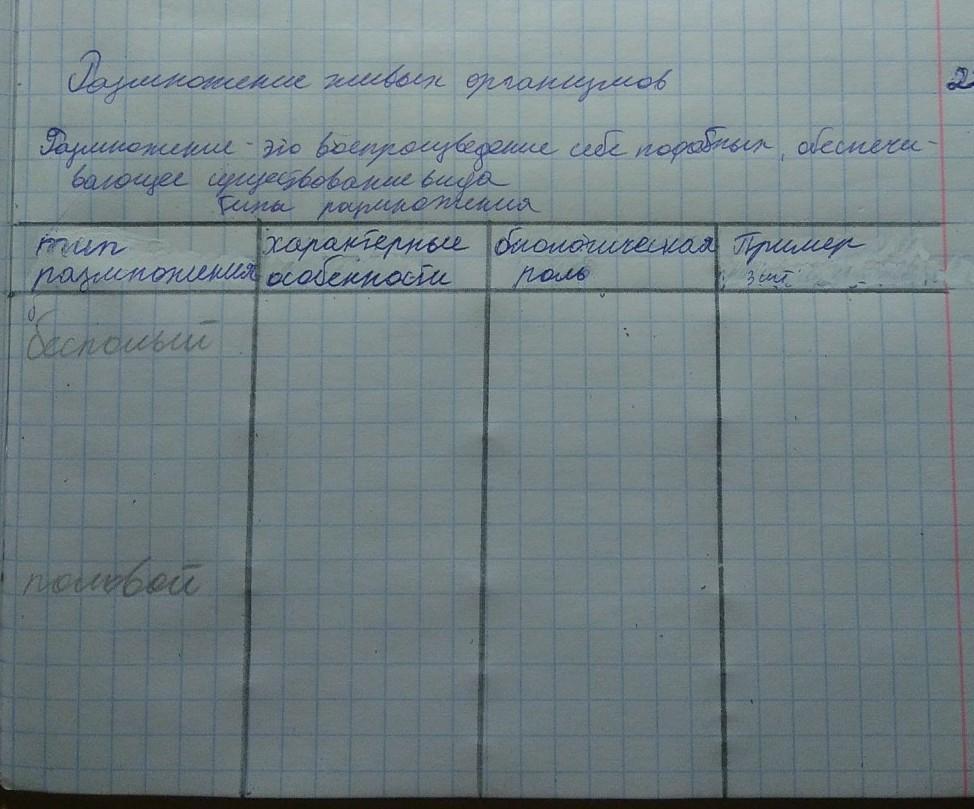 Размножение живых организмов
2
Размножение - это воспроизведение себе подобных, обеспечи-
вающее существование вида
типы размножения
тип размножения
характерные особенности
биологическая роль
Пример 3 шт
бесполый
половой